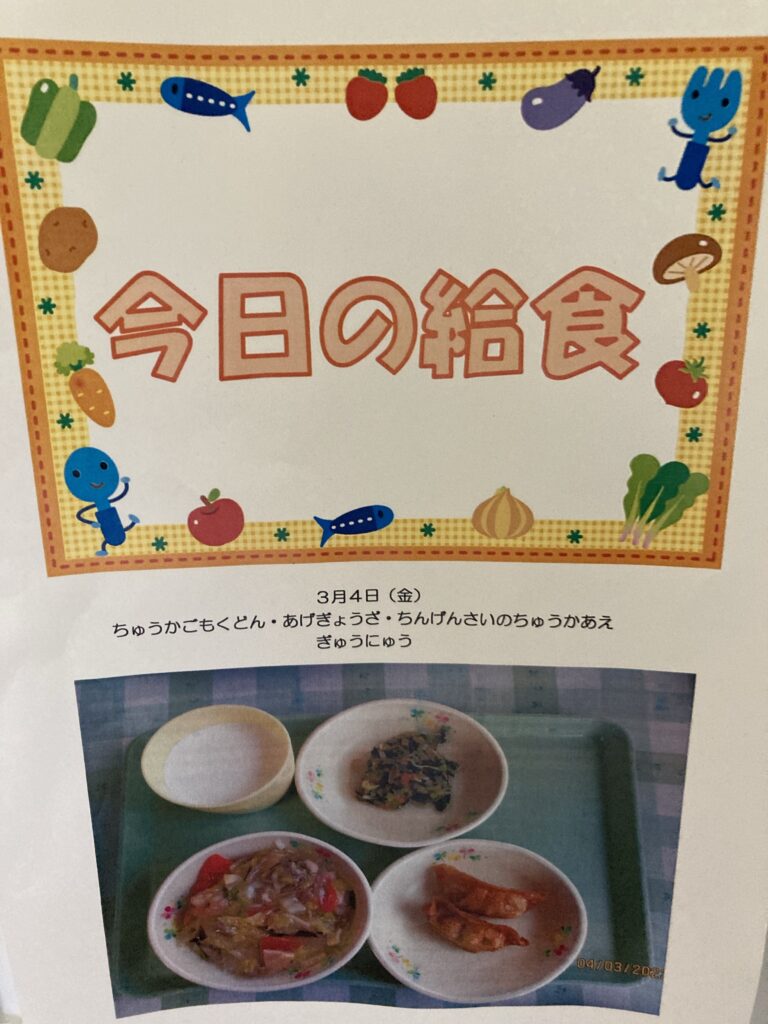 今日の給食
3月4日（金）
ちゅうかごもくどん・あげぎょうざ・ちんげんさいのちゅうかあえ
ぎゅうにゅう
04/03/202